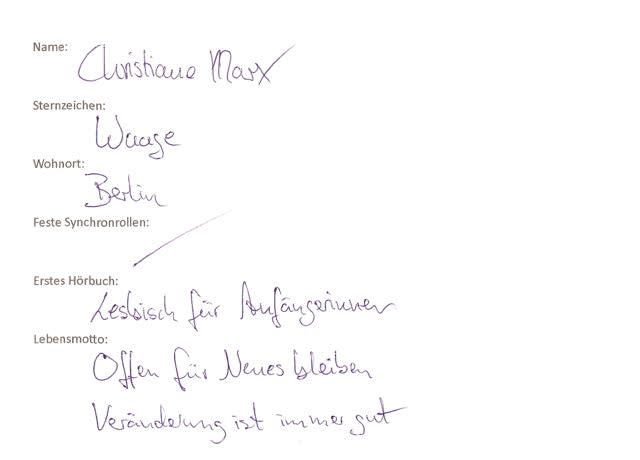 Name:
Christiane Marx
Sternzeichen:
Waage
Wohnort:
Berlin
Feste Synchronrollen:
Erstes Hörbuch:
Lesbisch für Anfängerinnen
Lebensmotto:
Offen für Neues bleiben
Veränderung ist immer gut